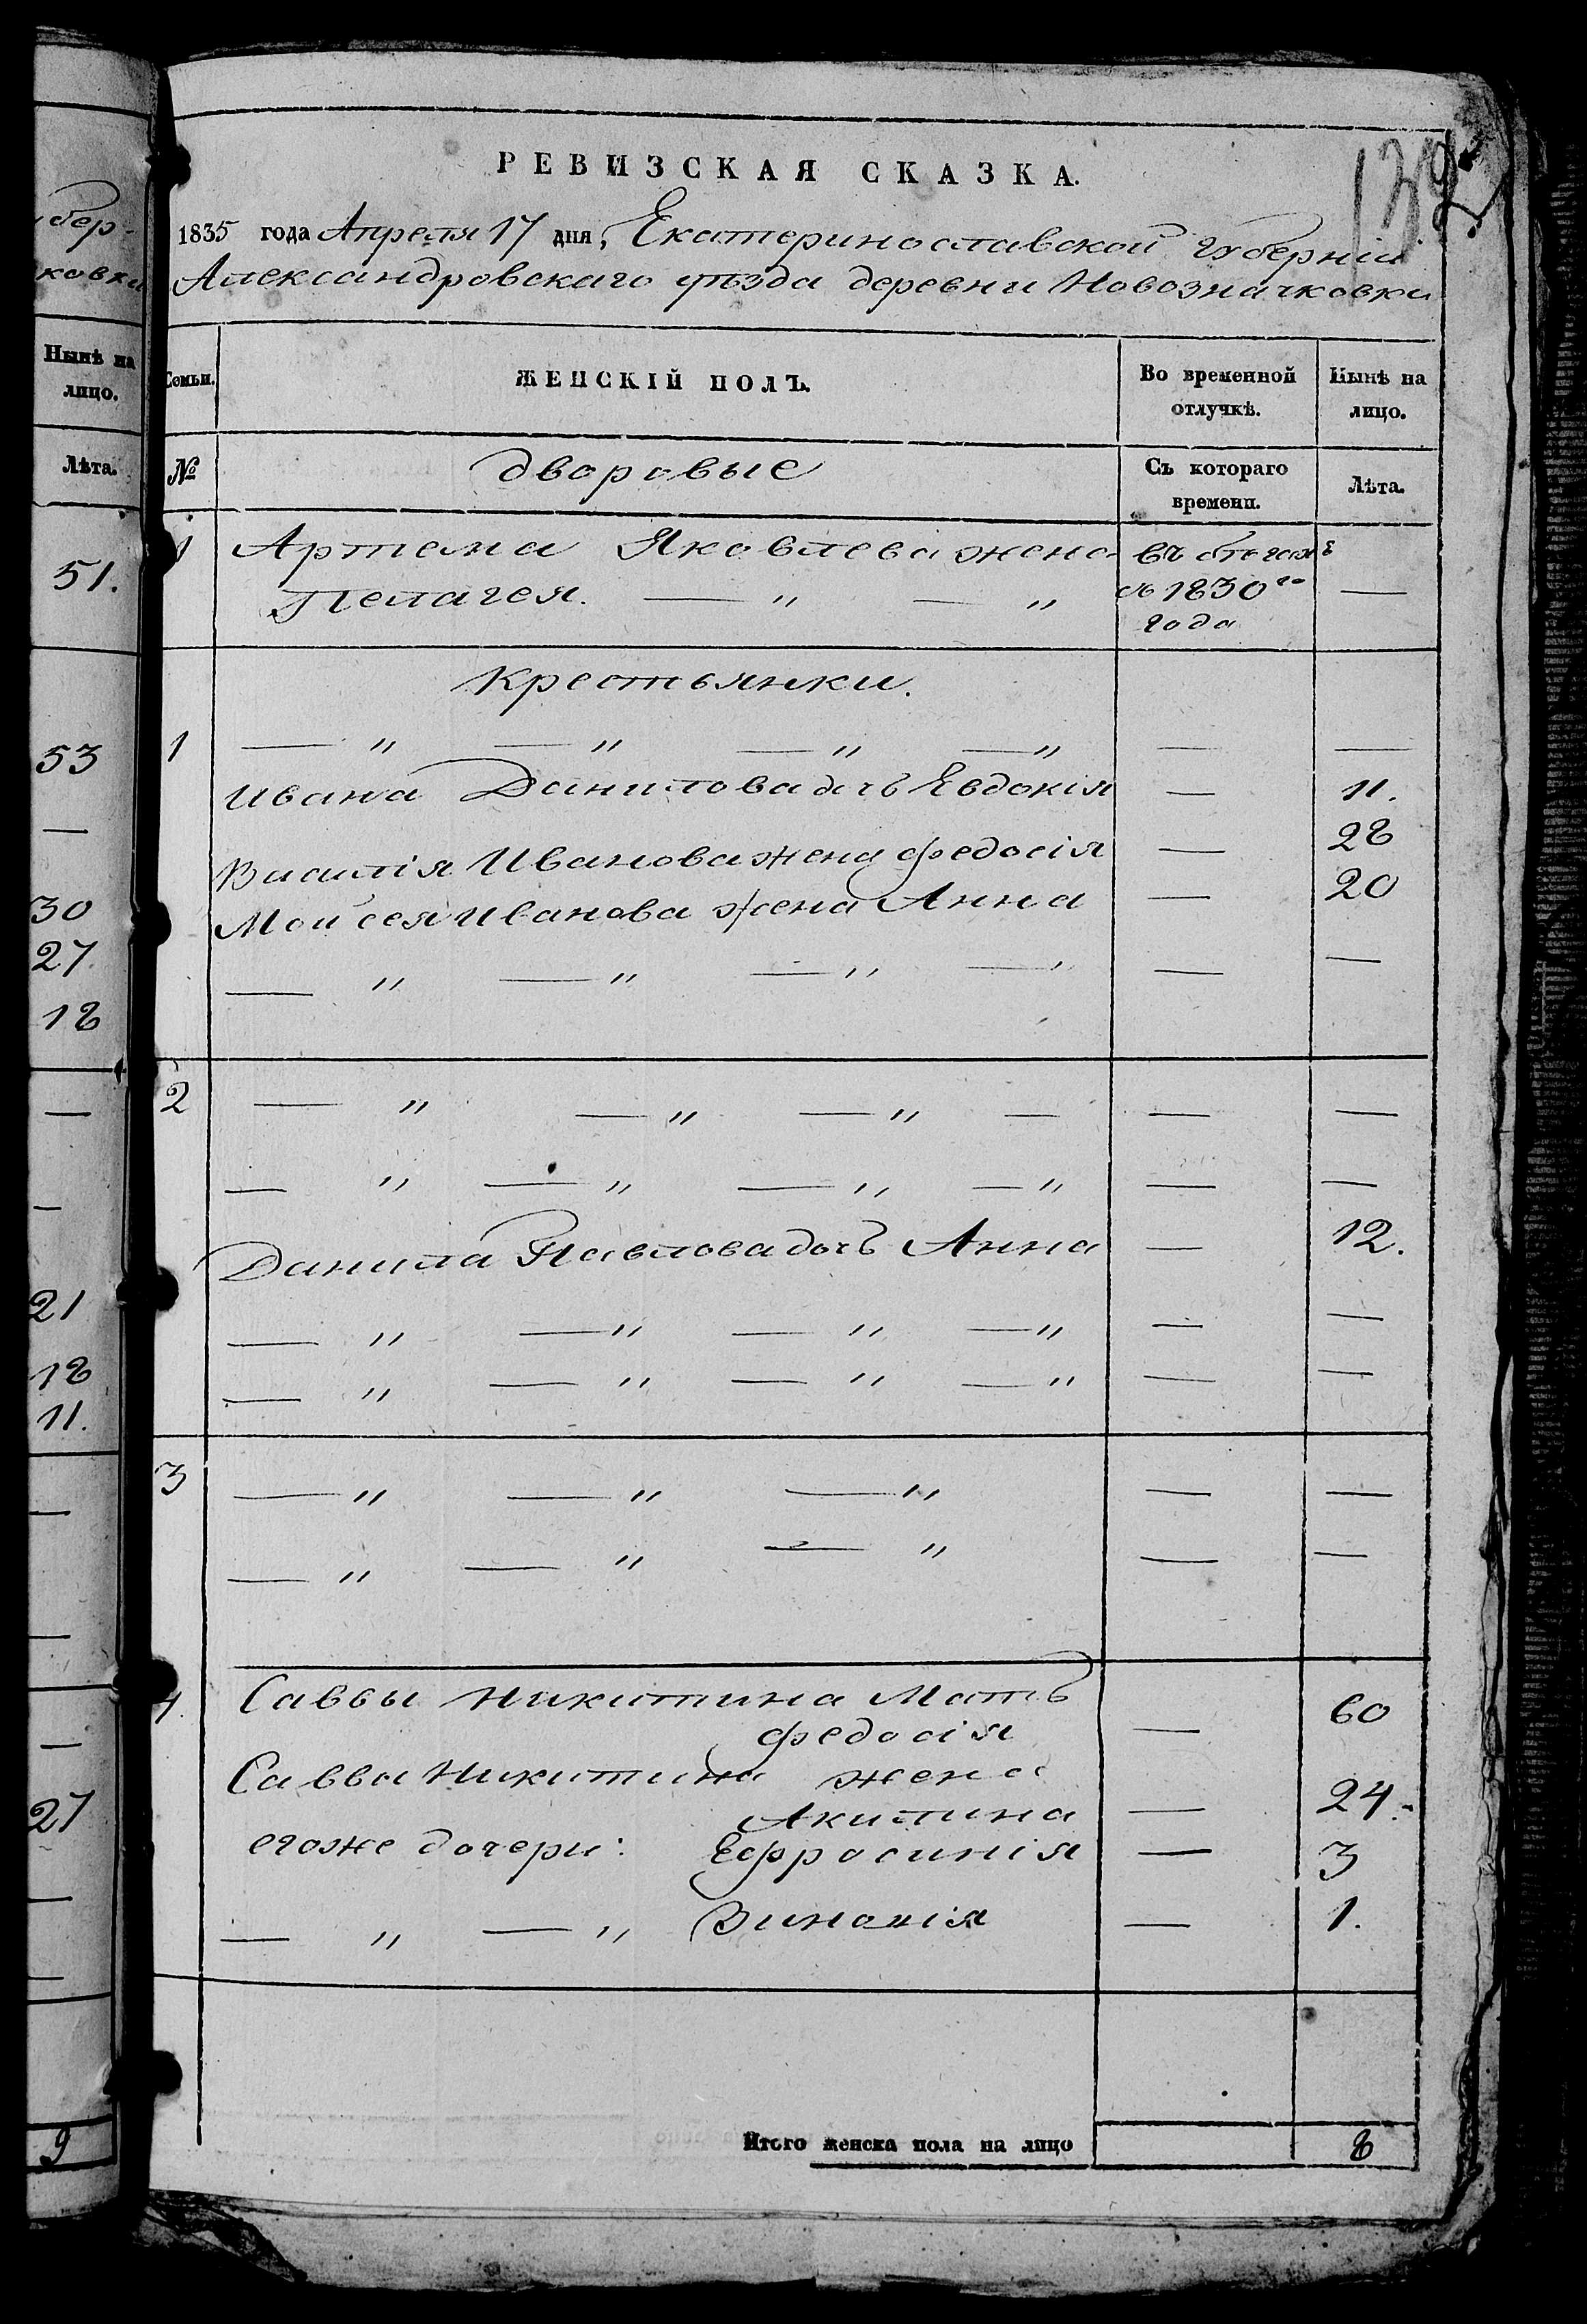 РЕВИЗСКАЯ СКАЗКА.
1835 года Апреля 17 дня, Екатеринославской губерніи
Александровскаго уѣзда деревни Новозначковки
Семьи. ЖЕНСКІЙ ПОЛЪ. Во временной отлучкѣ. Нынѣ на лицо.
№ дворовые Съ котораго времени. Лѣта.
1 Артема Яковлева жена въ бѣгахъ
Пелагея. — " — " съ 1830го —
года
Крестьянки.
1 — " — " — " — " — —
Ивана Данилова дочь Евдокія — 11.
Василія Иванова жена Федосія — 28
Мойсея Иванова жена Анна — 20
— " — " — " — " — —
2 — " — " — " — — —
— " — " — " — " — —
Данила Павлова дочь Анна — 12.
— " — " — " — " — —
— " — " — " — " — —
3 — " — " — " — —
— " — " — " — —
4 Саввы Никитина Мать
Федосія — 60
Савва Никитина жена
Акилина — 24.
егоже дочери: Ефросинія — 3
— " — " Зиновія — 1.
Итого женска пола на лицо 8
139
бер-
ковки
Нынѣ на
лицо.
Лѣта.
51.
53
—
30
27.
18
—
—
21
18
11.
—
—
—
27
—
—
9